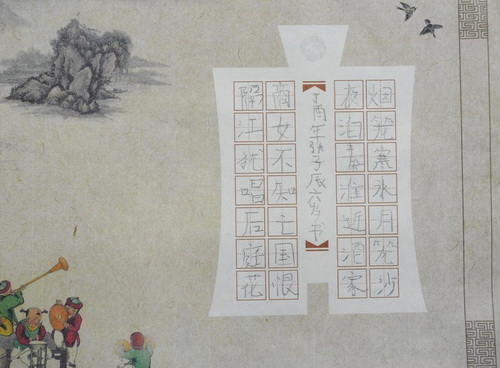 烟笼寒水月笼沙
夜泊秦淮近酒家
丁酉年张子辰六岁书
商女不知亡国恨
隔江犹唱后庭花